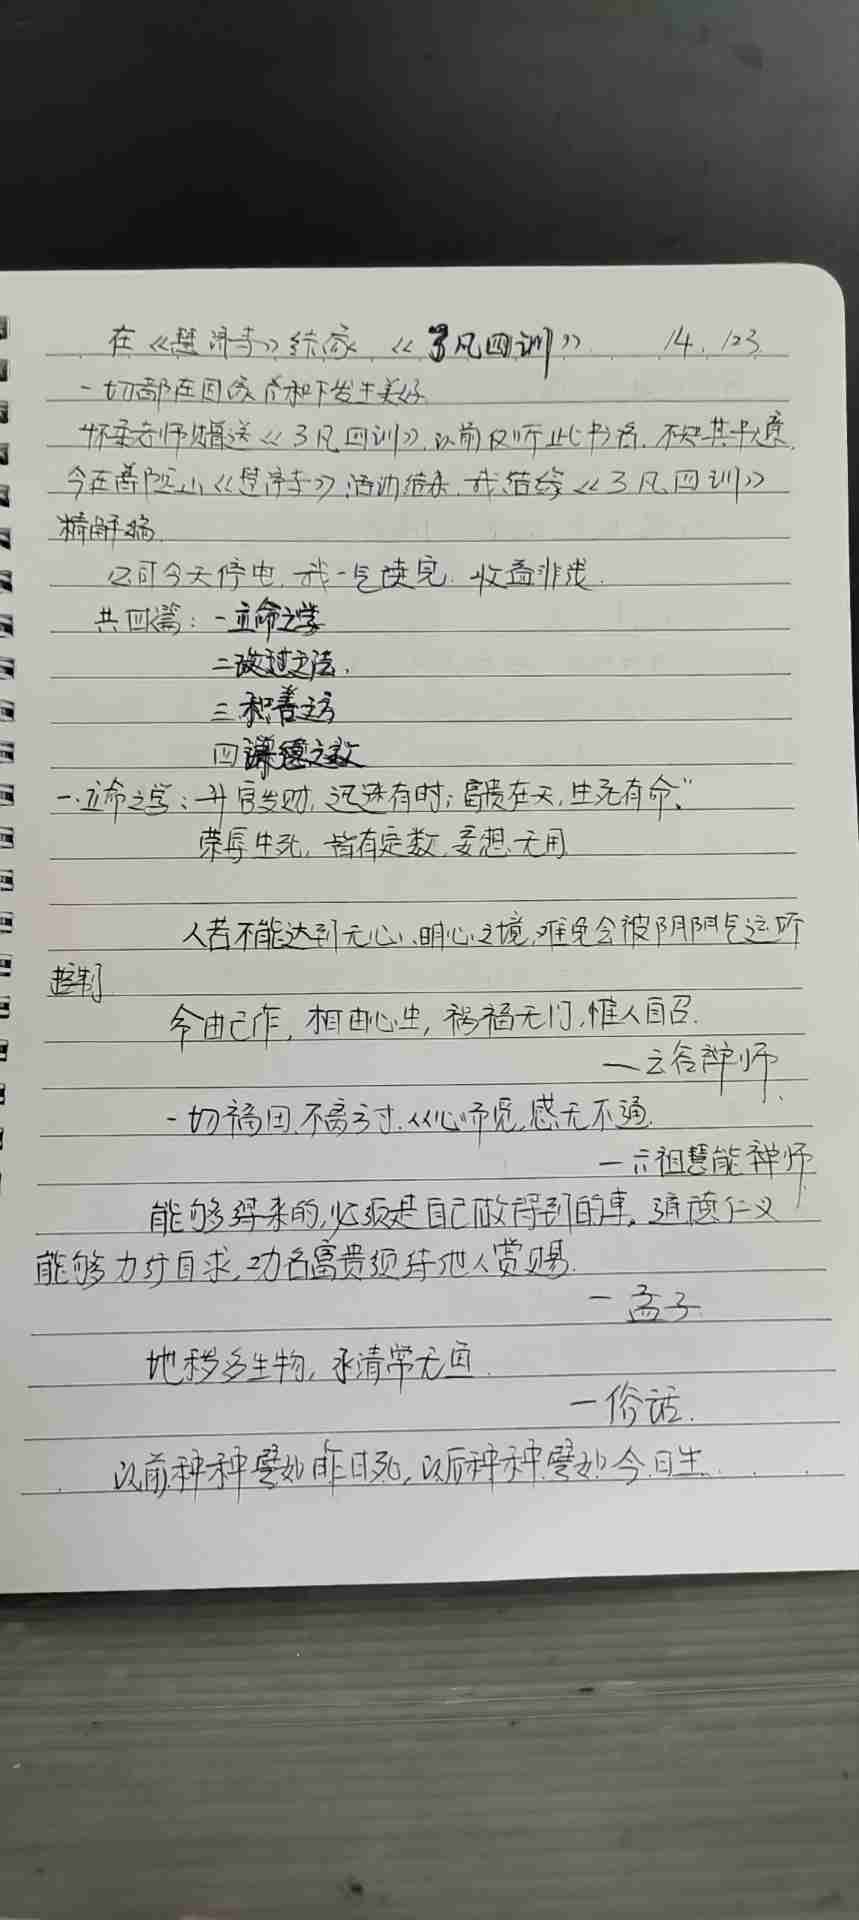 在《慧济寺》结缘《了凡四训》 14.123
一切都在因缘度和下发生美好
怀柔老师赠送《了凡四训》,以前仅听此书名,不知其中意,
今在普陀山《慧济寺》活动结束,我结缘《了凡四训》
精解编
公司今天停电,我一气读完,收益非浅.
共四篇:一立命之学
二改过之法.
三积善之方
四谦德之效
一.立命之学:升官发财,迟速有时;富贵在天,生死有命."
荣辱生死,皆有定数,妄想无用
人若不能达到无心、明心之境,难免会被阴阳气运所
控制
命由己作,相由心生,祸福无门,惟人自召.
—云谷禅师
一切福田,不离方寸.从心而觅,感无不通.
—六祖慧能禅师
能够得来的,必须是自己做得到的事。道德仁义
能够力行自求,功名富贵须待他人赏赐.
—孟子
地秽多生物,水清常无鱼.
—俗话.
以前种种譬如昨日死,以后种种譬如今日生.